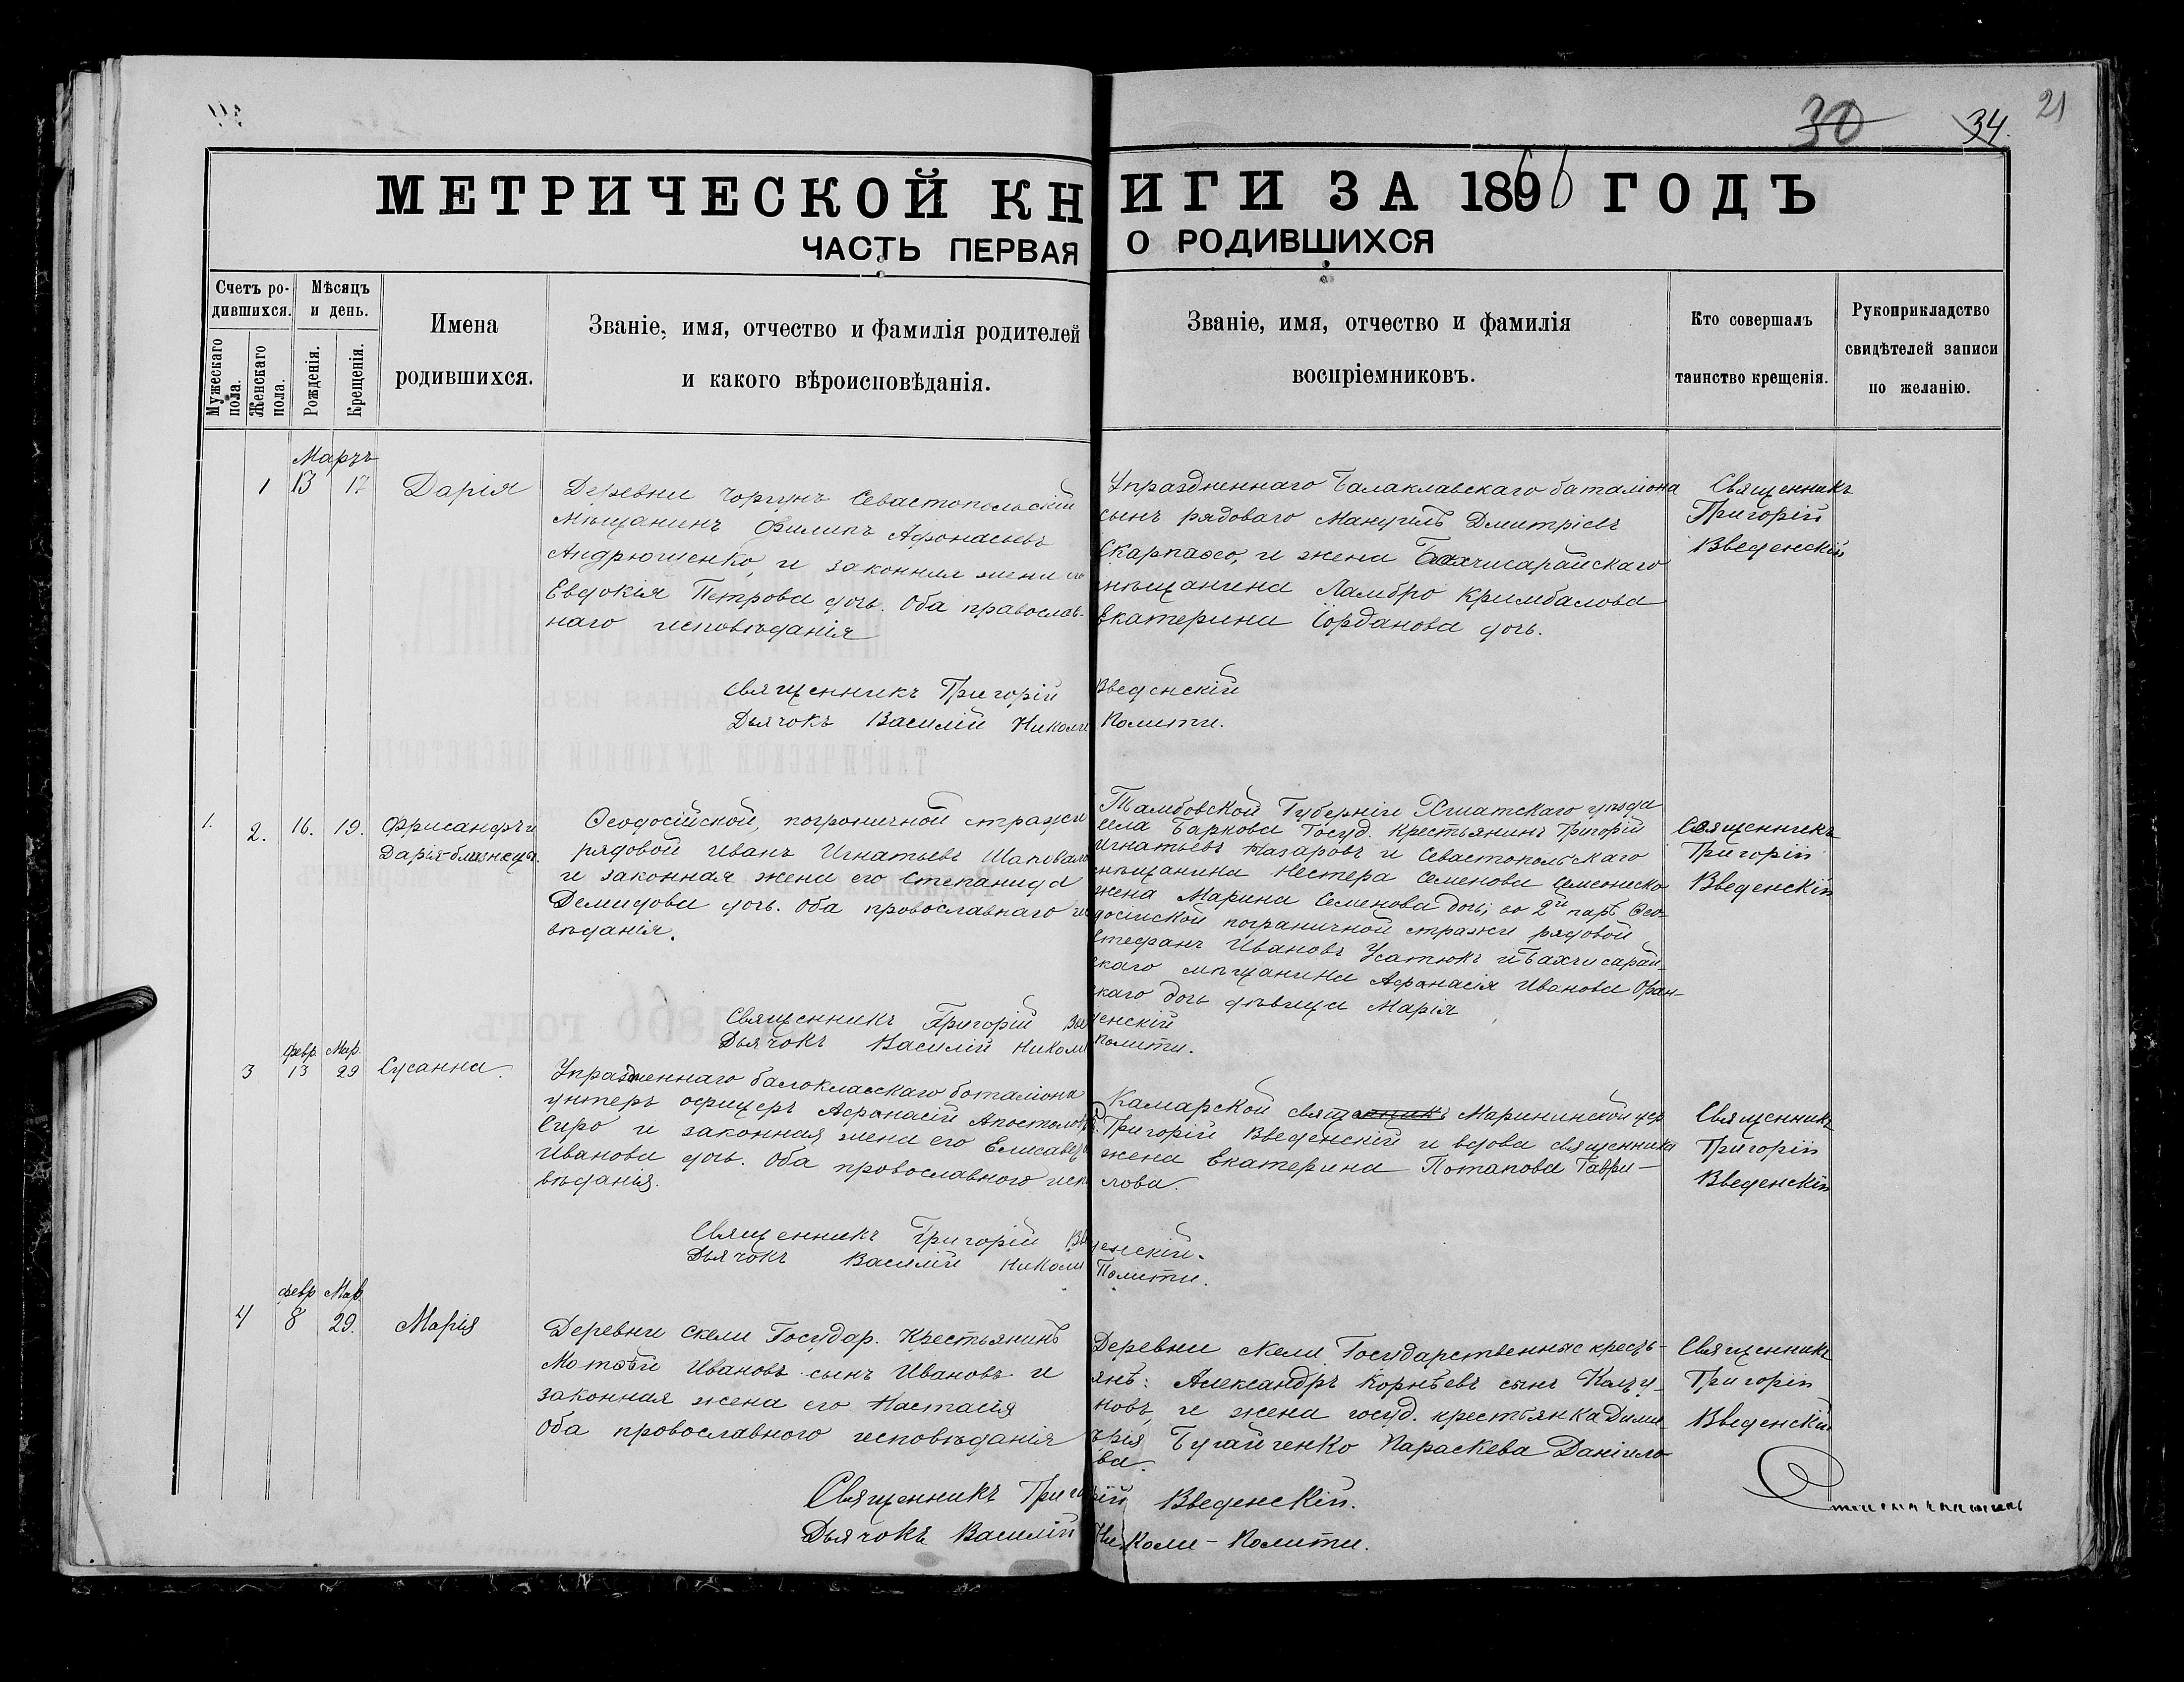 30 34. 21
МЕТРИЧЕСКОЙ КНИГИ ЗА 1866 ГОДЪ
ЧАСТЬ ПЕРВАЯ О РОДИВШИХСЯ
Счетъ ро-
дившихся.
Мужескаго пола.
Женскаго пола.
Мѣсяцъ
и день.
Рожденія.
Крещенія.
Имена
родившихся.
Званіе, имя, отчество и фамилія родителей
и какого вѣроисповѣданія.
Званіе, имя, отчество и фамилія
воспріемниковъ.
Кто совершалъ
таинство крещенія.
Рукоприкладство
свидѣтелей записи
по желанію.
Мартъ
1 13 17 Дарія
Деревни Чоргунъ Севастопольскій
мѣщанинъ Филипъ Афонасьевъ
Андрющенко, и законная жена его
Евдокія Петрова дочь. Оба православ-
наго исповѣданія
Упраздненнаго Балаклавскаго баталіона
сынъ рядоваго Мануилъ Дмитріевъ
Скарпахо, и жена Бахчисарайскаго
мѣщанина Ламбро Кримбалова
Екатерина Іорданова дочь.
Священникъ
Григорій
Введенскій
Священникъ Григорій Введенскій
Дьячокъ Василій Николи Полити.
1. 2. 16. 19. Хрисанфъ и
Дарія-близнецы.
Ѳеодосійской, пограничной стражи
рядовой Иванъ Игнатьевъ Шаповало
и законная жена его Степанида
Демидова дочь. Оба провославнаго и
вѣданія.
Тамбовской Губерніи уѣзда
села Баркова Госуд. крестьянинъ Григорій
Игнатьевъ Назаровъ и Севастопольскаго
мѣщанина Нестера Семенова
жена Марина Семенова дочь; во 2й парѣ Ѳео-
досійской пограничной стражи рядовой
Стефанъ Ивановъ Усатюкъ и Бахчисарай-
скаго мѣщанина Афанасія Иванова
скаго дочь дѣвица Марія
Священникъ
Григорій
Введенскій
Священникъ Григорій Введенскій
Дьячокъ Василій Николи Полити.
Февр. Мар.
3 13 29 Сусанна.
Упраздненнаго балоклавскаго баталіона
унтеръ офицеръ Афанасій Апостоловъ
Сиро и законная жена его Елисавета
Иванова дочь. Оба провославного исп
вѣданія.
Камарской свящ Марининской цер
Григорій Введенскій и вдова священника
жена Екатерина Потапова Гаври-
лова.
Священникъ
Григорій
Введенскій
Священникъ Григорій Введенскій.
Дьячокъ Василій Николи Полити.
февр Мар.
4 8 29. Марія
Деревни Скели Государ. Крестьянинъ
Матвѣй Ивановъ сынъ Ивановъ и
законная жена его Настасія
Оба провославного исповѣданія
Деревни Скели Государственные кресть-
янъ: Александръ Корнѣевъ сынъ
новъ, и жена госуд. крестьянка Дими-
трія Бугайченко Параскева Даніило-
ва.
Священникъ
Григорій
Введенскій
Священникъ Григорій Введенскій.
Дьячокъ Василій Николи-Полити.